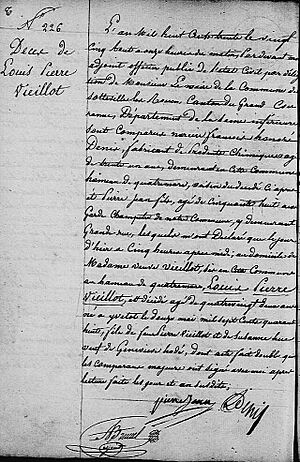 N° 226
Décès de
Louis Pierre
Vieillot
L'an Mil huit Cent trente le vingt
Cinq huit a onze heures du matin, Pardevant
adjoint officier public de l'état Civil par
de Monsieur Le maire de la Commune de
Sotteville les Rouen, Canton de Grand Cour
ronne, Département de la Seine inférieure
Sont Comparus françois honoré
Denis, fabricant de Produits Chimiques agé
de trente un ans, demeurant en Cette Commune
hameau de quatremare, du décédé Ci après
et Pierre agé de Cinquante huit ans
Garde Champêtre de notre Commune, y demeurant
Grande rue, lesquels m'ont Déclaré que le jour
d'hier a Cinq heures après midi, au domicile de
Madame Veuve Vieillot, sis en Cette Commune
au hameau de quatremare, Louis Pierre
Vieillot, est décédé agé de quatre vingt deux ans
né a yvetot le douze mai mil sept Cents quarante
huit, fils de feu Pierre Vieillot et de Susanne
veuf de Geneviève dont acte fait double que
les Comparans majeurs ont signé avec moi après
lecture faite les jour et an susdits,
Denis